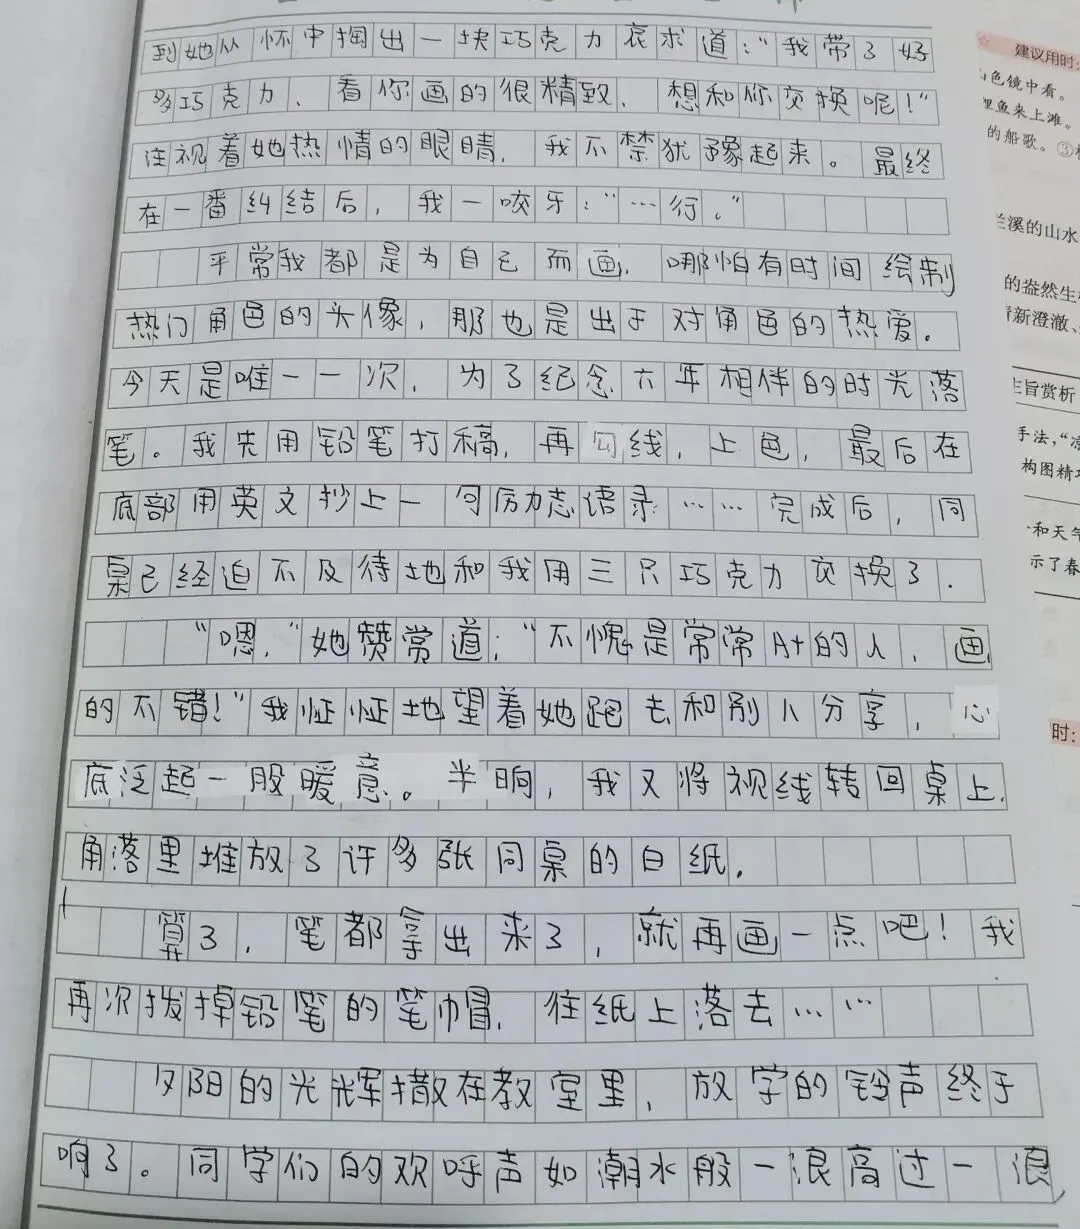 到她从怀中掏出一块巧克力哀求道：“我带了好
多巧克力，看你画的很精致，想和你交换呢！”
注视着她热情的眼睛，我不禁犹豫起来。最终
在一番纠结后，我一咬牙：“…行。”
平常我都是为自己而画，哪怕有时间绘制
热门角色的头像，那也是出于对角色的热爱。
今天是唯一一次，为了纪念六年相伴的时光落
笔。我先用铅笔打稿，再勾线，上色，最后在
底部用英文抄上一句励志语录……完成后，同
桌已经迫不及待地和我用三只巧克力交换了．
“嗯，”她赞赏道：“不愧是常常A+的人，画
的不错！”我怔怔地望着她跑去和别人分享，心
底泛起一股暖意。半晌，我又将视线转回桌上，
角落里堆放了许多张同桌的白纸．
算了，笔都拿出来了，就再画一点吧！我
再次拔掉铅笔的笔帽，往纸上落去……
夕阳的光辉撒在教室里，放学的铃声终于
响了。同学们的欢呼声如潮水般一浪高过一浪，
建议用时：
色镜中看。
鲤鱼来上滩。
的船歌。③
兰溪的山水
的盎然生
新澄澈、
主旨赏析
手法，“
构图精巧
和天气
示了春
时：